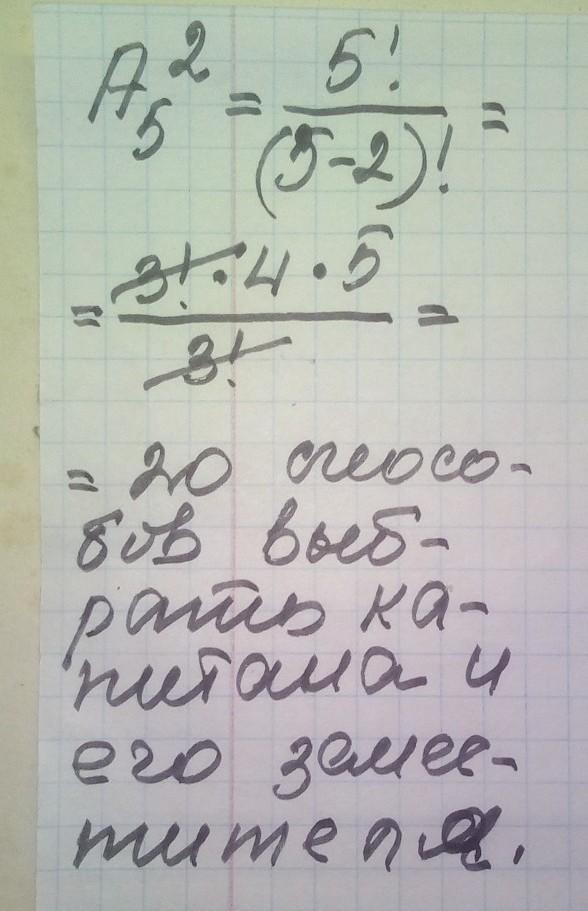 A₅² = 5!/(5-2)! =
= 3!·4·5/3! =
= 20 спосо-
бов выб-
рать ка-
питана и
его замес-
тителя.